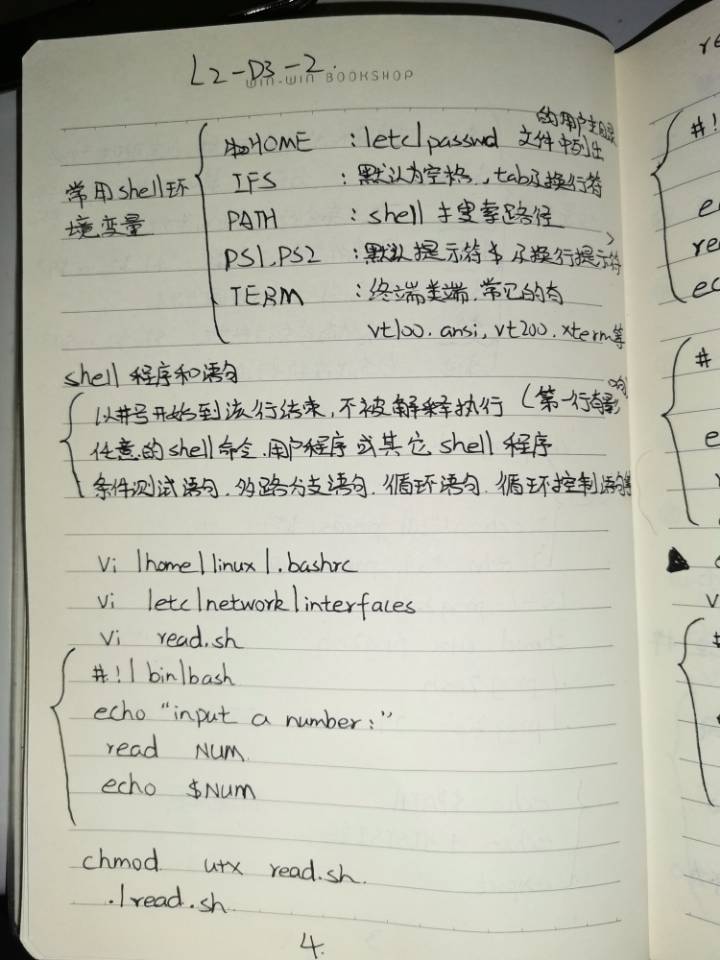 L2-D3-2.
WIN-WIN BOOKSHOP
常用shell环境变量
HOME :/etc/passwd 文件中列出的用户主目录
IFS :默认为空格,tab及换行符
PATH :shell 搜索路径
PS1,PS2 :默认提示符$及换行提示符>
TERM :终端类端,常见的有
vt100.ansi,vt200.xterm等
shell 程序和语句
以井号开始到该行结束,不被解释执行(第一行
任意的shell命令.用户程序或其它shell程序
条件测试语句.多路分支语句.循环语句.循环控制语句等
vi /home/linux/.bashrc
vi /etc/network/interfaces
vi read.sh
#!/bin/bash
echo “input a number:”
read NUM
echo $NUM
chmod u+x read.sh
./read.sh
4.
re
#!
e
re
ec
#
e
v
#